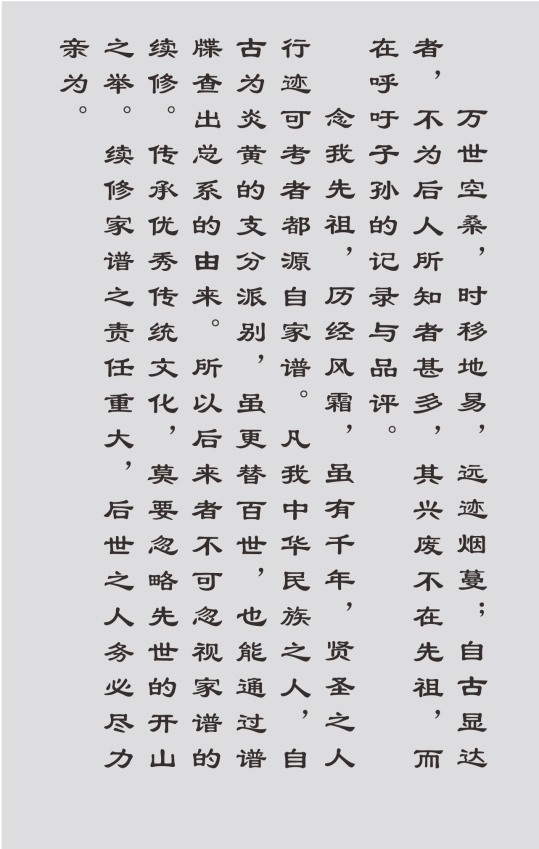 万世空桑，时移地易，远迹烟蔓；自古显达
者，不为后人所知者甚多，其兴废不在先祖，而
在呼吁子孙的记录与品评。
念我先祖，历经风霜，虽有千年，贤圣之人
行迹可考者都源自家谱。凡我中华民族之人，自
古为炎黄的支分派别，虽更替百世，也能通过谱
牒查出总系的由来。所以后来者不可忽视家谱的
续修。传承优秀传统文化，莫要忽略先世的开山
之举。续修家谱之责任重大，后世之人务必尽力
亲为。